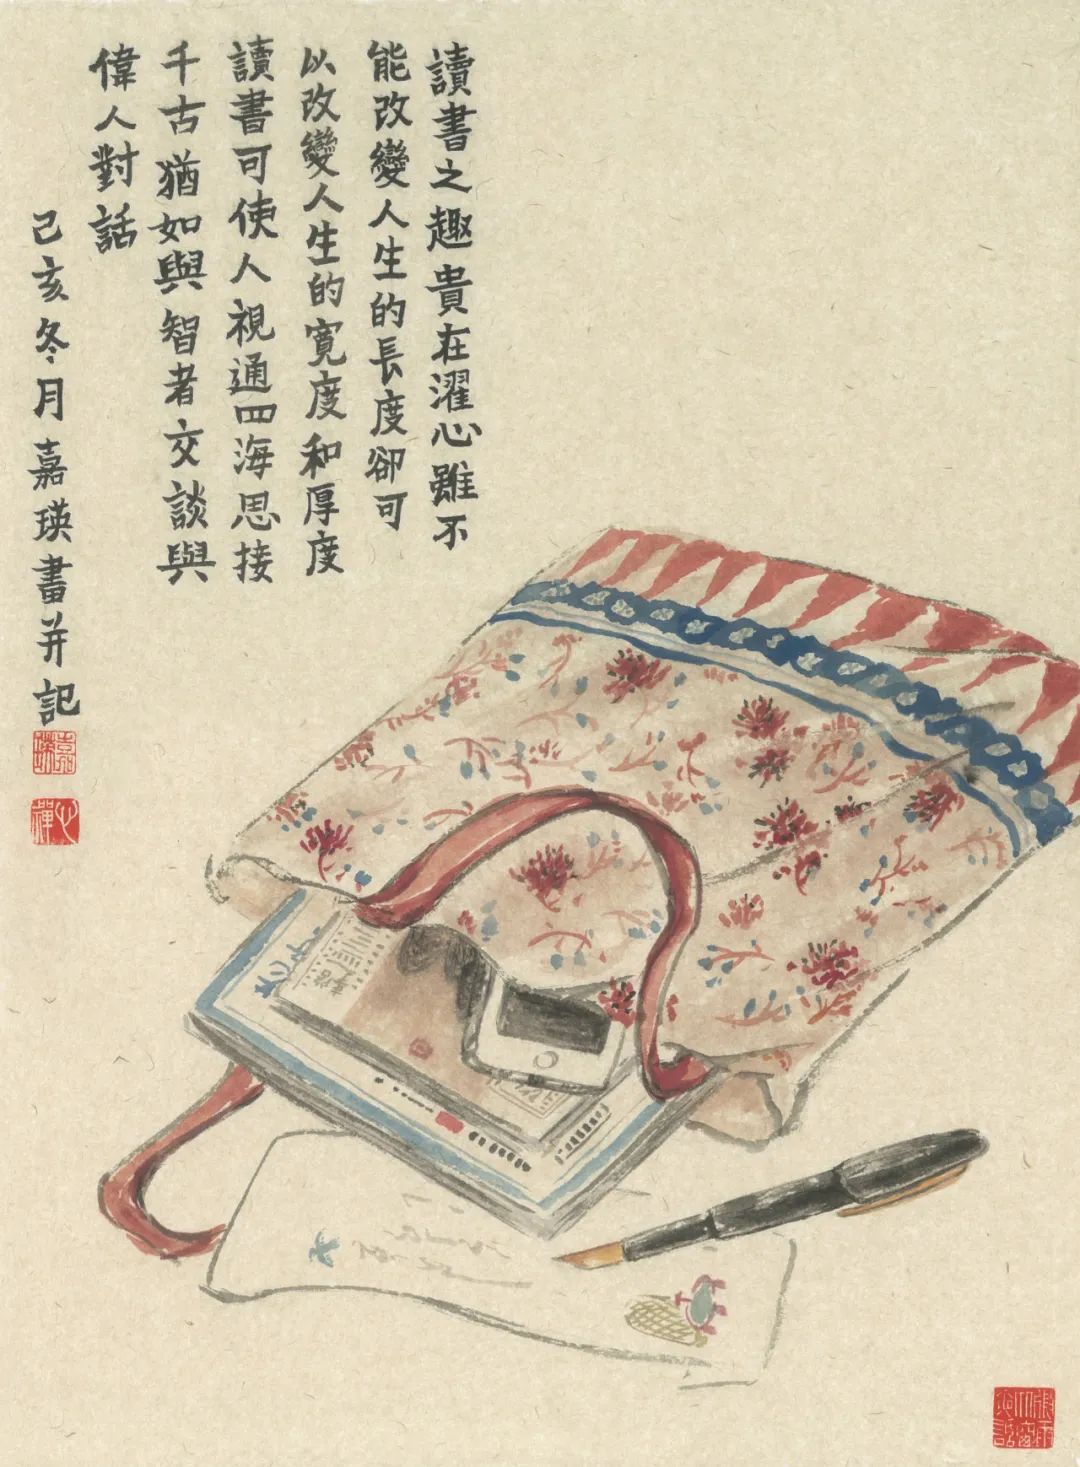 讀書之趣貴在濯心雖不
能改變人生的長度卻可
以改變人生的寬度和厚度
讀書可使人視通四海思接
千古猶如與智者交談與
偉人對話
己亥冬月嘉瑛畫并記
嘉瑛